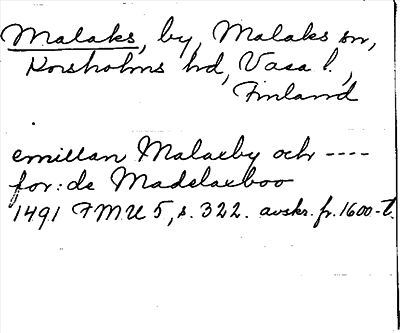 Malaks, by, Malaks sn,
Korsholms hd, Vasa l.,
Finland
emillan Malaxby och ----
for: de Madelaxboo
1491 FMU 5, s. 322. avskr. fr. 1600-t.